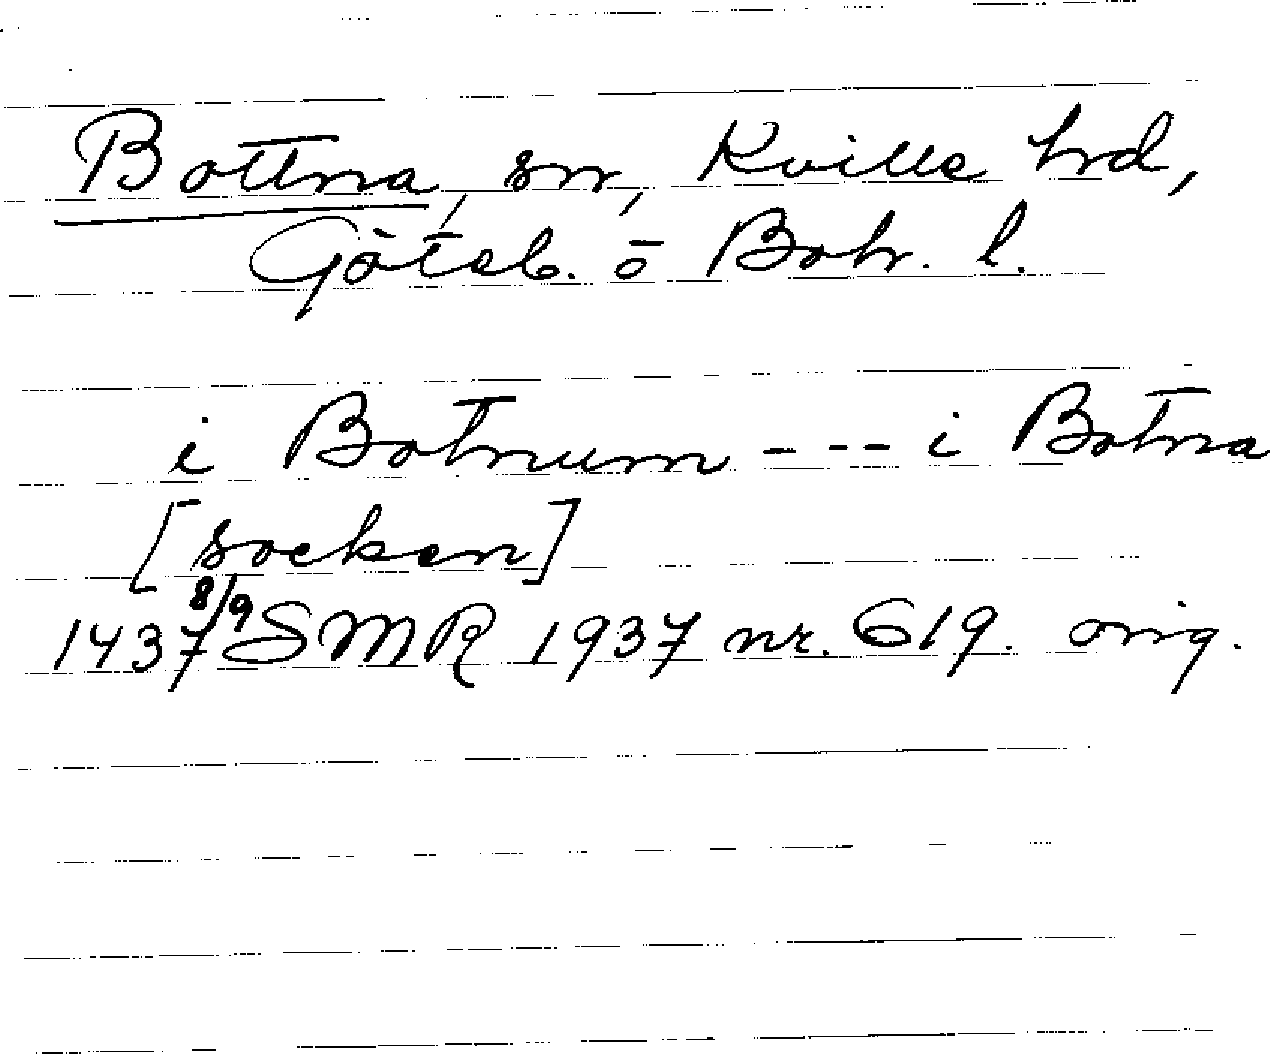 Bottna, sn, Kville hrd,
Göteb. o Boh. l.
i Botnum --- i Botna
[socken]
1437 8/9 SMR 1937 nr. 619. orig.